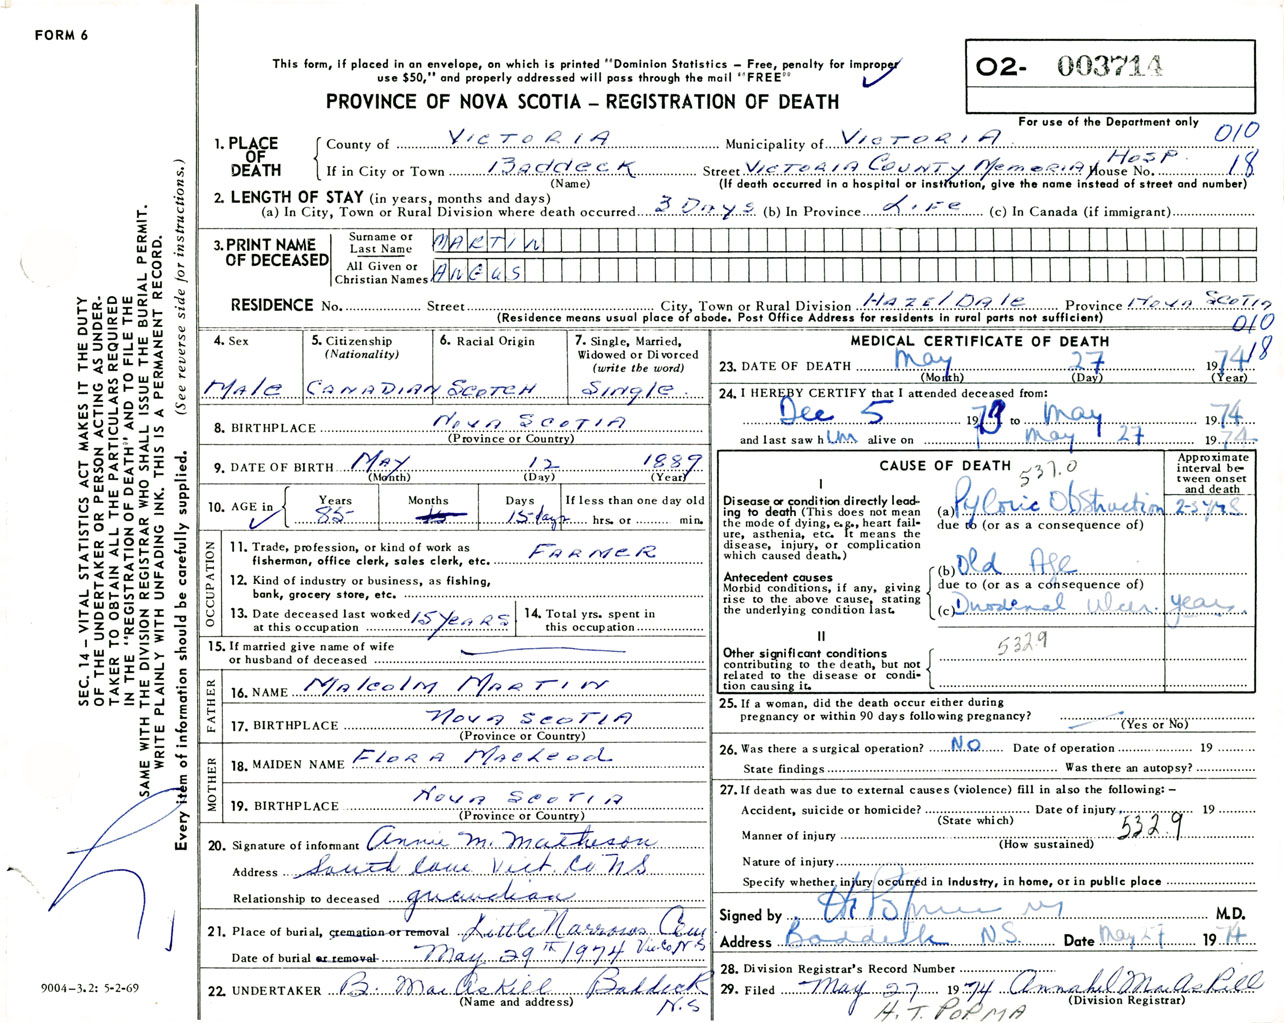 FORM 6
This form, if placed in an envelope, on which is printed "Dominion Statistics – Free, penalty for improper
use $50," and properly addressed will pass through the mail "FREE"
PROVINCE OF NOVA SCOTIA – REGISTRATION OF DEATH
02- 003714
For use of the Department only
010
18
1. PLACE OF DEATH
County of VICTORIA Municipality of VICTORIA
If in City or Town BADDECK Street VICTORIA COUNTY MEMORIAL HOSP. House No.
(Name) (If death occurred in a hospital or institution, give the name instead of street and number)
2. LENGTH OF STAY (in years, months and days)
(a) In City, Town or Rural Division where death occurred 3 DAYS (b) In Province LIFE (c) In Canada (if immigrant)
3. PRINT NAME OF DECEASED
Surname or Last Name MARTIN
All Given or Christian Names ANGUS
RESIDENCE No. Street City, Town or Rural Division HAZELDALE Province NOVA SCOTIA
(Residence means usual place of abode. Post Office Address for residents in rural parts not sufficient)
010
18
4. Sex MALE
5. Citizenship (Nationality) CANADIAN
6. Racial Origin SCOTCH
7. Single, Married, Widowed or Divorced (write the word) SINGLE
8. BIRTHPLACE NOVA SCOTIA
(Province or Country)
9. DATE OF BIRTH MAY 12 1889
(Month) (Day) (Year)
10. AGE in Years 85 Months Days 15 days If less than one day old hrs. or min.
OCCUPATION
11. Trade, profession, or kind of work as fisherman, office clerk, sales clerk, etc. FARMER
12. Kind of industry or business, as fishing, bank, grocery store, etc.
13. Date deceased last worked at this occupation 15 YEARS
14. Total yrs. spent in this occupation
15. If married give name of wife or husband of deceased
FATHER
16. NAME MALCOLM MARTIN
17. BIRTHPLACE NOVA SCOTIA
(Province or Country)
MOTHER
18. MAIDEN NAME FLORA MACLEOD
19. BIRTHPLACE NOVA SCOTIA
(Province or Country)
20. Signature of informant Annie M. Matheson
Address South Cove Vict. Co N S
Relationship to deceased guardian
21. Place of burial, cremation or removal Little Narrows Cem
Vic. Co. N.S
Date of burial or removal May 29TH 1974
22. UNDERTAKER B. MacAskill Baddeck N.S
(Name and address)
MEDICAL CERTIFICATE OF DEATH
23. DATE OF DEATH May 27 1974
(Month) (Day) (Year)
24. I HEREBY CERTIFY that I attended deceased from:
Dec 5 1973 to May 1974
and last saw him alive on May 27 1974
CAUSE OF DEATH
537.0
Approximate interval between onset and death
I
Disease or condition directly leading to death (This does not mean the mode of dying, e.g., heart failure, asthenia, etc. It means the disease, injury, or complication which caused death.)
(a) Pyloric Obstruction 2-3 yrs
due to (or as a consequence of)
Antecedent causes
Morbid conditions, if any, giving rise to the above cause, stating the underlying condition last.
(b) Old Age
due to (or as a consequence of)
(c) Duodenal ulcer. years
II
532.9
Other significant conditions
contributing to the death, but not related to the disease or condition causing it.
25. If a woman, did the death occur either during
pregnancy or within 90 days following pregnancy?
(Yes or No)
26. Was there a surgical operation? NO Date of operation 19
State findings Was there an autopsy?
27. If death was due to external causes (violence) fill in also the following: –
Accident, suicide or homicide? Date of injury 19
(State which)
Manner of injury 532.9
(How sustained)
Nature of injury
Specify whether injury occurred in Industry, in home, or in public place
Signed by M.D.
Address Baddeck N.S. Date May 27 1974
28. Division Registrar's Record Number
29. Filed May 27 1974 Annabel MacAskill
(Division Registrar)
H.T. POPMA
SEC. 14 – VITAL STATISTICS ACT MAKES IT THE DUTY
OF THE UNDERTAKER OR PERSON ACTING AS UNDER-
TAKER TO OBTAIN ALL THE PARTICULARS REQUIRED
IN THE "REGISTRATION OF DEATH" AND TO FILE THE
SAME WITH THE DIVISION REGISTRAR WHO SHALL ISSUE THE BURIAL PERMIT.
WRITE PLAINLY WITH UNFADING INK. THIS IS A PERMANENT RECORD.
Every item of information should be carefully supplied. (See reverse side for instructions.)
9004-3.2: 5-2-69